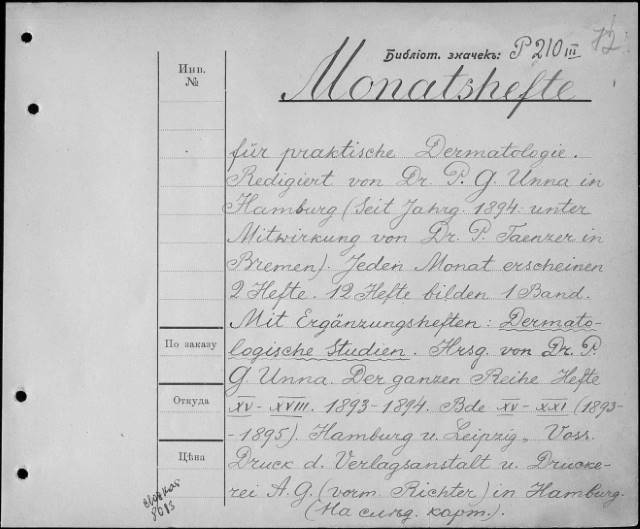 Библіот. значекъ: P 210 III 12
Инв. №
Monatshefte
für praktische Dermatologie.
Redigiert von Dr. P. G. Unna in
Hamburg (Seit Jahrg. 1894 unter
Mitwirkung von Dr. P. Taenzer in
Bremen). Jeden Monat erscheinen
2 Hefte. 12 Hefte bilden 1 Band.
Mit Ergänzungsheften: Dermato-
По заказу
logische Studien. Hrsg. von Dr. P.
G. Unna. Der ganzen Reihe Hefte
Откуда
XV-XVIII. 1893-1894. Bde XV-XXI (1893-
-1895). Hamburg u. Leipzig, Voss.
Цѣна
Druck d. Verlagsanstalt u. Drucke-
rei A.G. (vorm. Richter) in Hamburg.
(На слѣд. карт.).